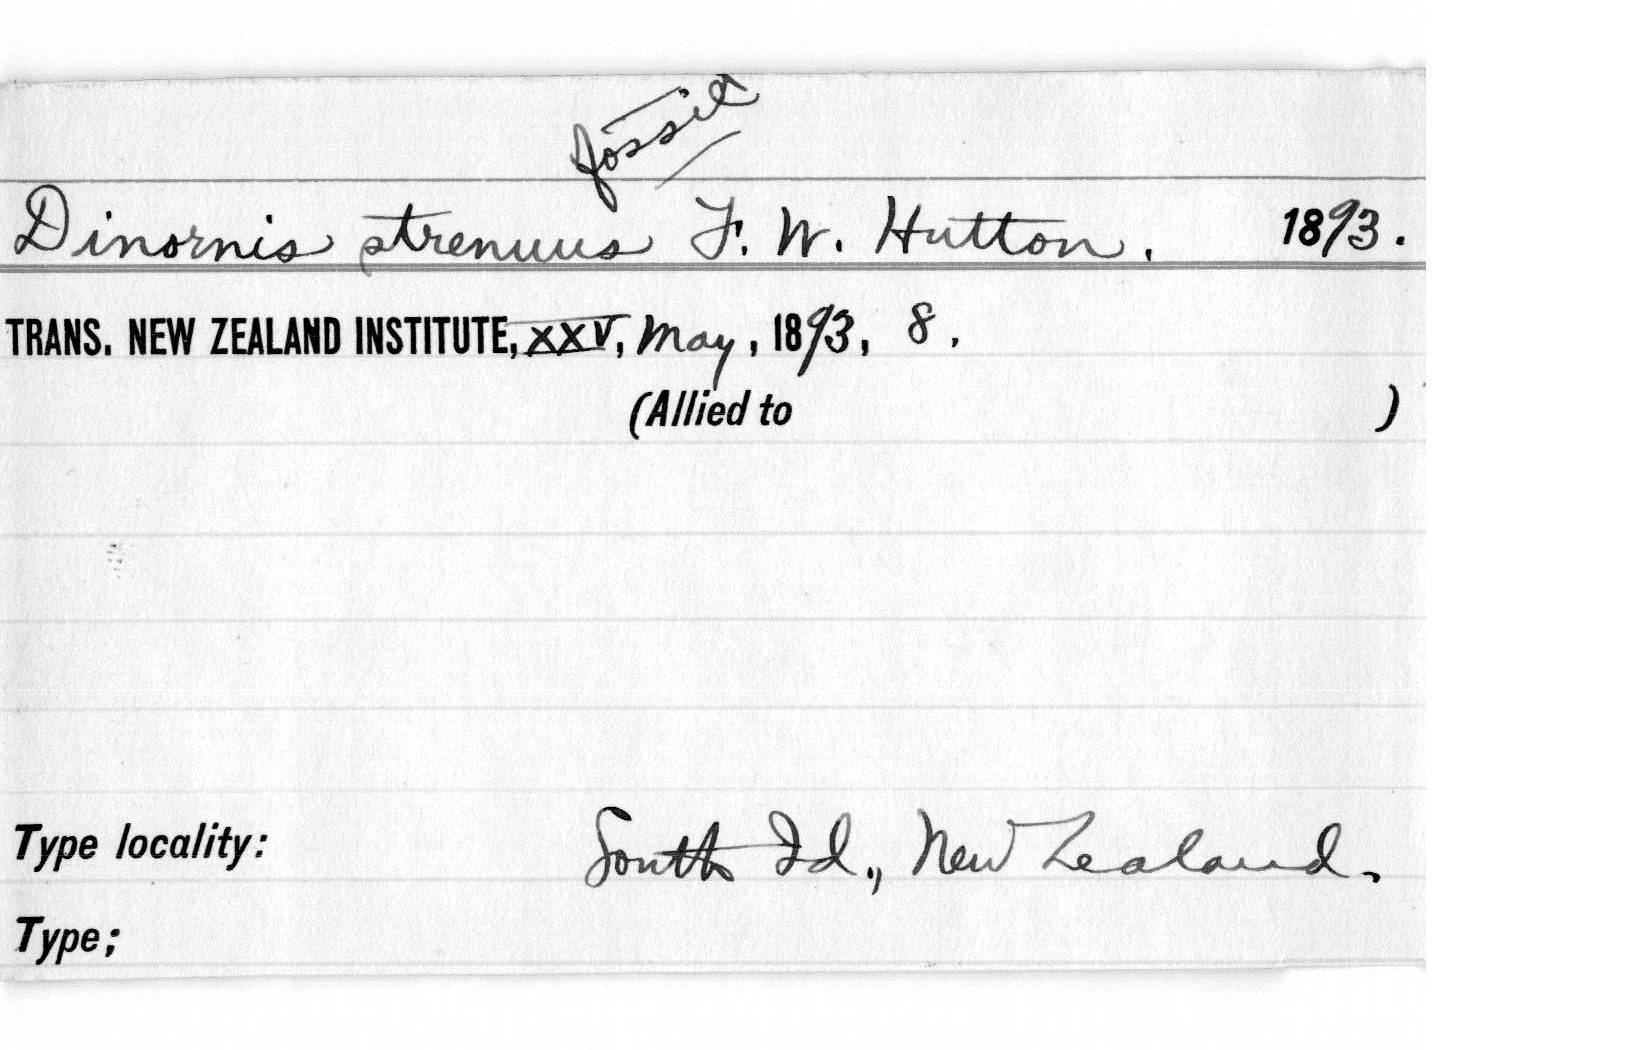 fossil
Dinornis strenuus F. W. Hutton. 1893.
TRANS. NEW ZEALAND INSTITUTE, XXV, May, 1893, 8.
(Allied to )
Type locality: South Id., New Zealand.
Type;